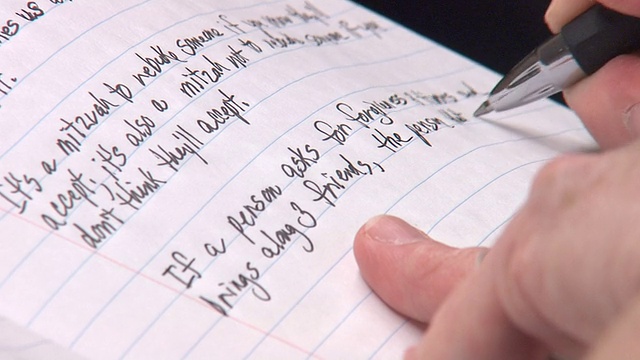 us
It's a mitzvah to rebuke someone if you know they'll
accept; it's also a mitzvah not to rebuke someone if you
don't think they'll accept.
If a person asks for forgiveness and
brings along 3 friends, the person